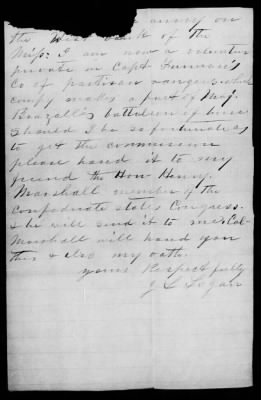 army on
the West bank of the
Miss: I am now a volunteer
private in Capt
Co of partisan rangers which
compy makes a part of Maj.
battalion of
Should I be so fortunate as
to get the commission
please hand it to my
friend the Hon Henry
Marshall member of the
Confederate states Congress.
& he will send it to me. Col-
Marshall will hand you
this & also my oath.
yours Respectfully
J L Logan